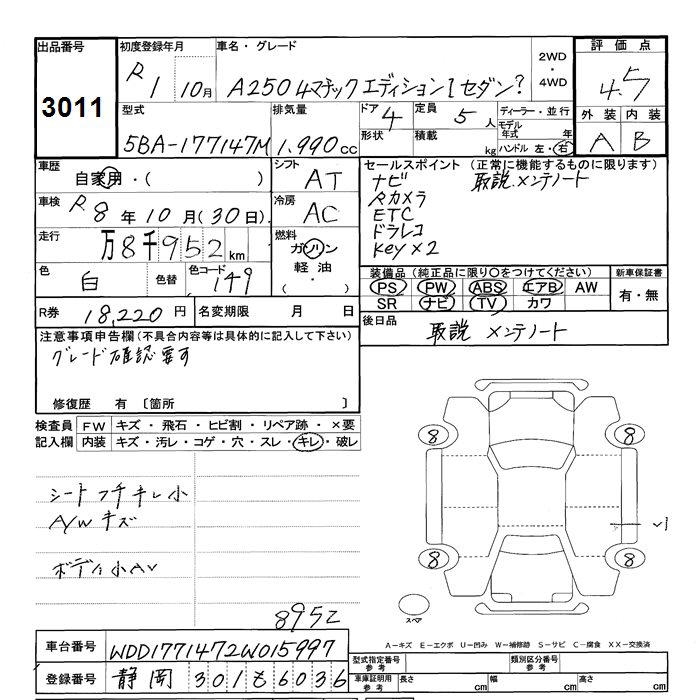 出品番号 初度登録年月 車名・グレード 2WD・4WD 評価点
3011 R1 10月 A250 4マチック エディション1セダン? 4.5
型式 排気量 ドア 4 定員 5人 ディーラー・並行 外装 内装
5BA-177147M 1.990cc 形状 積載 kg モデル年式 年 ハンドル 左・右 A B
車歴 自家用・( ) シフト AT セールスポイント(正常に機能するものに限ります)
車検 R8年10月(30日) 冷房 AC ナビ 取説.メンテノート
走行 万8千952km 燃料 ガソリン 軽油 (・) カメラ
ETC
ドラレコ
Key×2
色 白 色替 色コード 149 装備品(純正品に限り〇をつけてください) 新車保証書
PS PW ABS エアB AW 有・無
SR ナビ TV カワ
R券 18,220円 名変期限 月 日 後日品 取説 メンテノート
注意事項申告欄(不具合内容等は具体的に記入して下さい)
グレード確認要す
修復歴 有〔箇所 〕
検査員記入欄 FW キズ・飛石・ヒビ割・リペア跡・×要
内装 キズ・汚レ・コゲ・穴・スレ・キレ・破レ
8 8
シートフチキレ小
A/Wキズ √1
ボディ小AV 8 8
スペア
8952
A-キズ E-エクボ U-凹み W-補修跡 S-サビ C-腐食 XX-交換済
車台番号 WDD1771472W015997 型式指定番号 参考 類別区分番号 参考
登録番号 静岡 301 も 6036 車庫証明用 参考 長さ cm 幅 cm 高さ cm